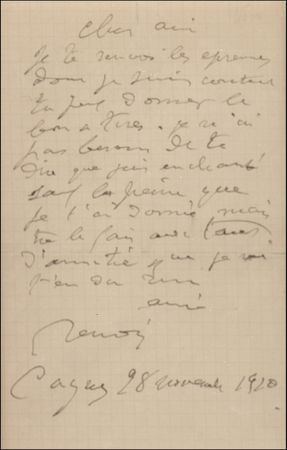 cher ami
je te renvois les epreuves
dont je suis content
tu peux donner le
bon a tirer. je n'ai
pas besoin de te
dire que suis enchanté
sauf la peine que
je t'ai donné mais
tu le fais avec tant
d'amitié que je
t'en
ami
Renoir
Cagnes 28 novembre 1910